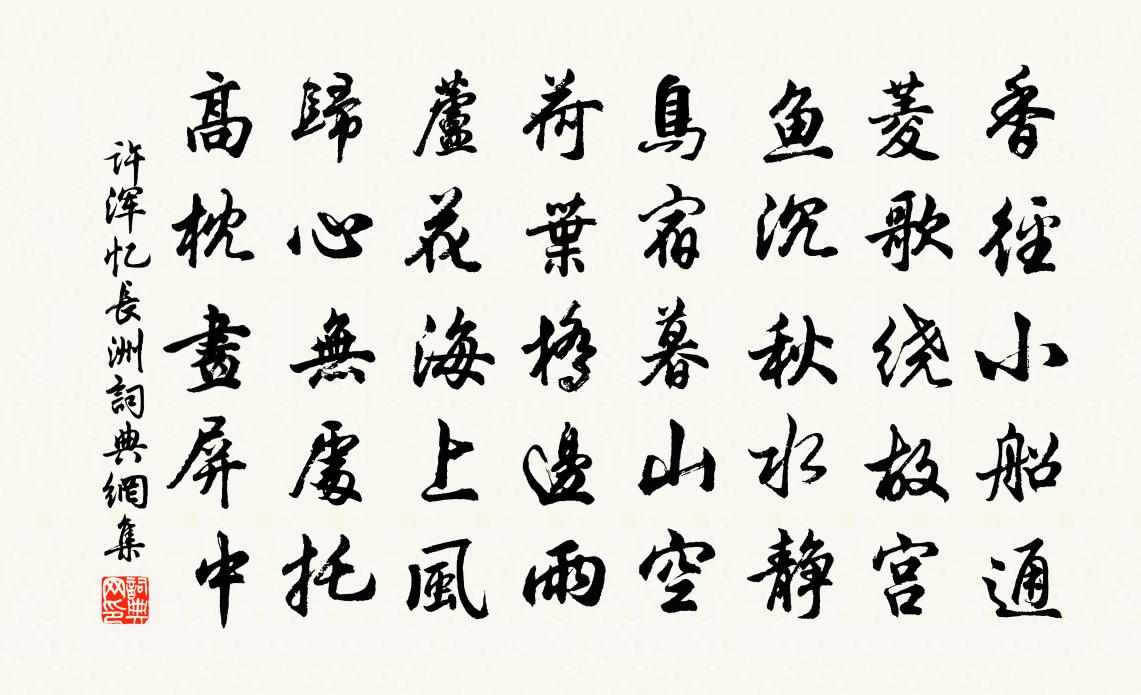 香徑小船通
菱歌绕故宫
鱼沉秋水静
鳥宿暮山空
荷葉橋邊雨
蘆花海上風
歸心無處托
高枕畫屏中
许浑忆長洲詞典網集
詞典
网印